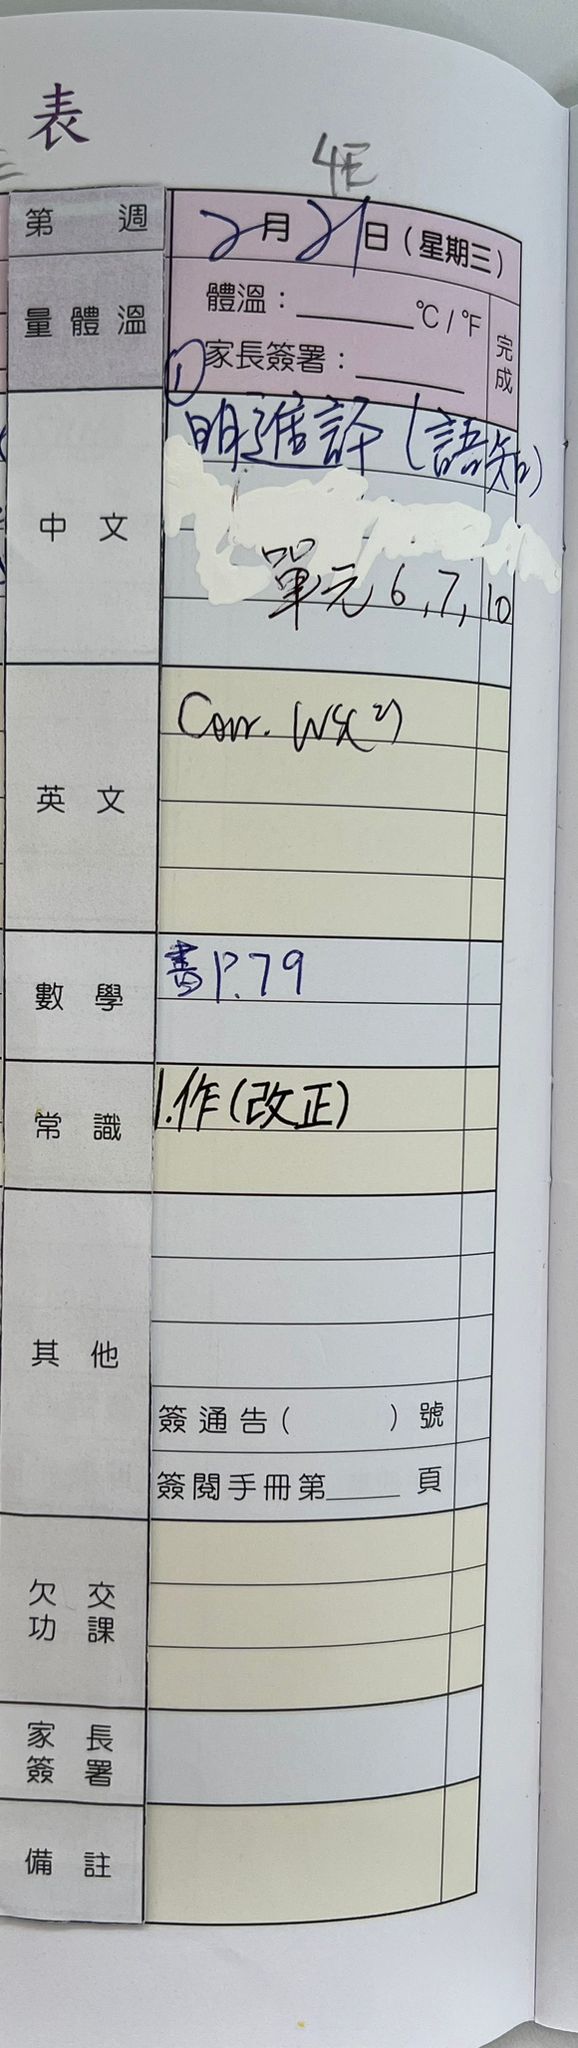 表
4E
第 週
2月21日(星期三)
量體溫
體溫：______°C/°F
完成
家長簽署：______
中文
① 明進評(語知)
單元 6, 7, 10
英文
Corr. WS(2)
數學
書P.79
常識
1.作(改正)
其他
簽通告( )號
簽閱手冊第____頁
欠交
功課
家長
簽署
備註